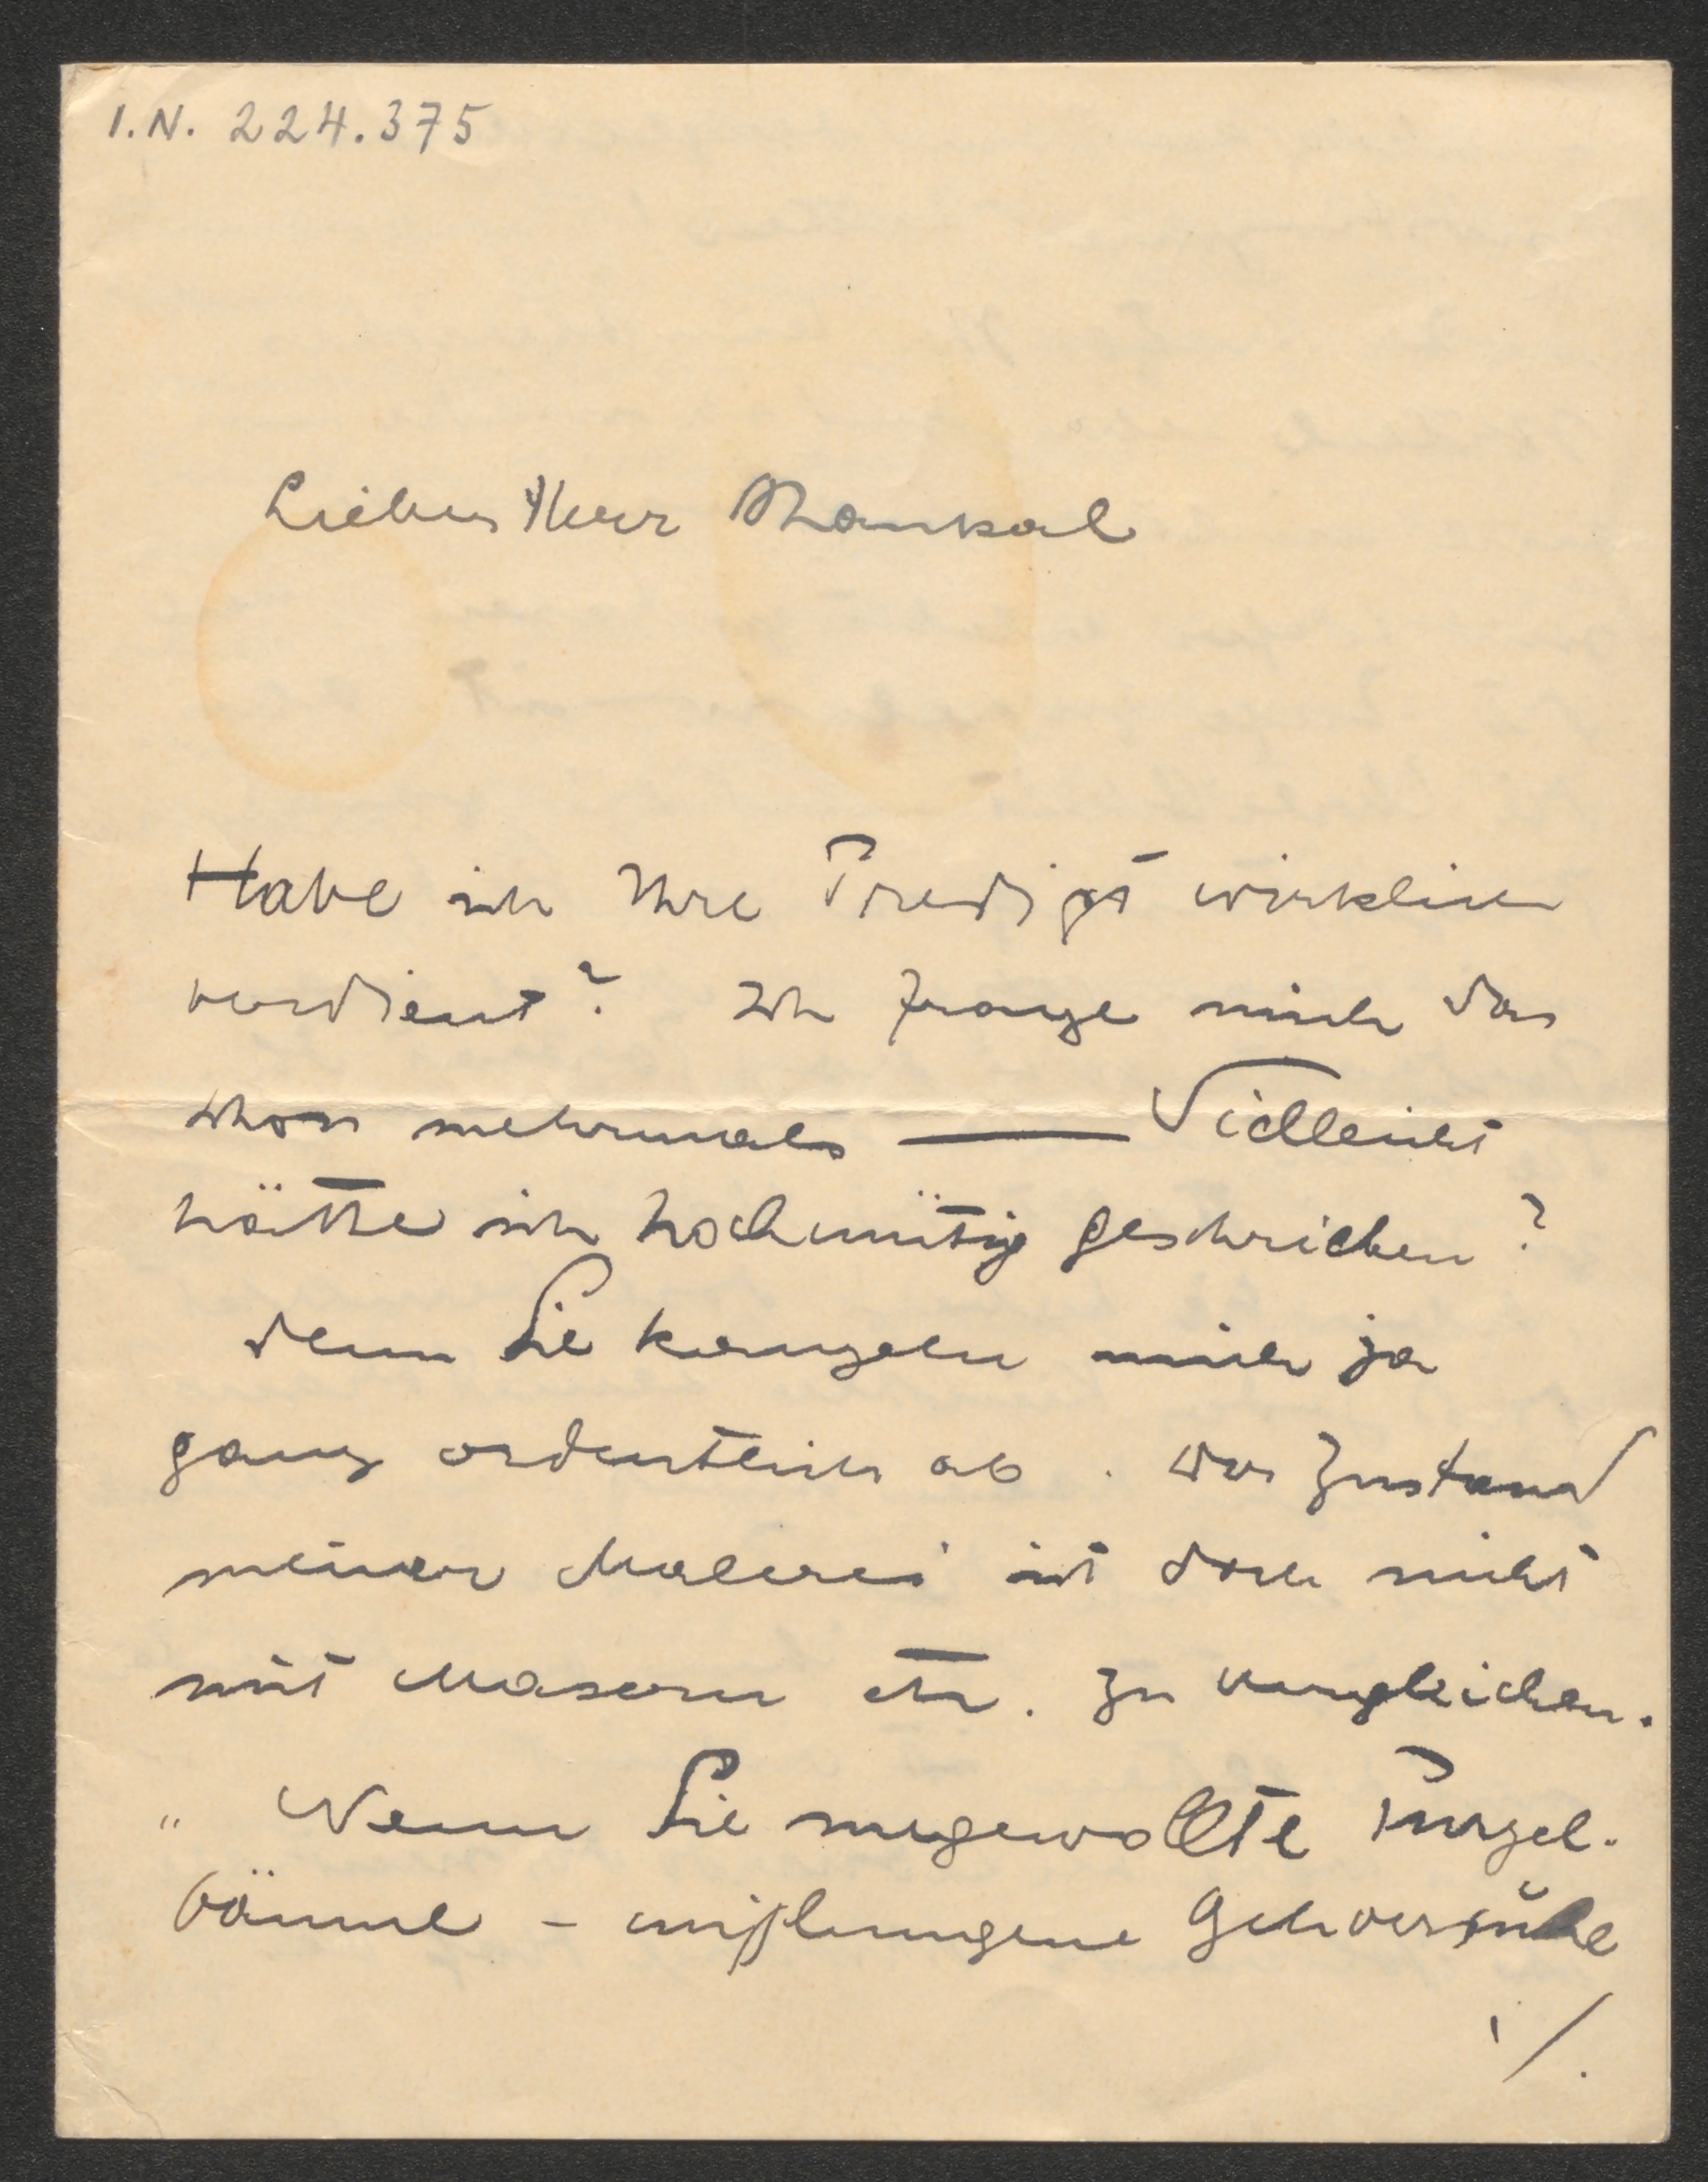 I.N. 224.375
Lieber Herr
Habe ich Ihre Predigt wirklich
verdient? Ich frage mich das
schon mehrmals — Vielleicht
hätte ich hochmütig geschrieben?
denn Sie kanzeln mich ja
ganz ordentlich ab. Der Zustand
meiner Malerei ist doch nicht
mit Masern etc. zu vergleichen.
„ Wenn Sie ungewollte Purzel-
bäume - mißlungene Gehversuche
./.